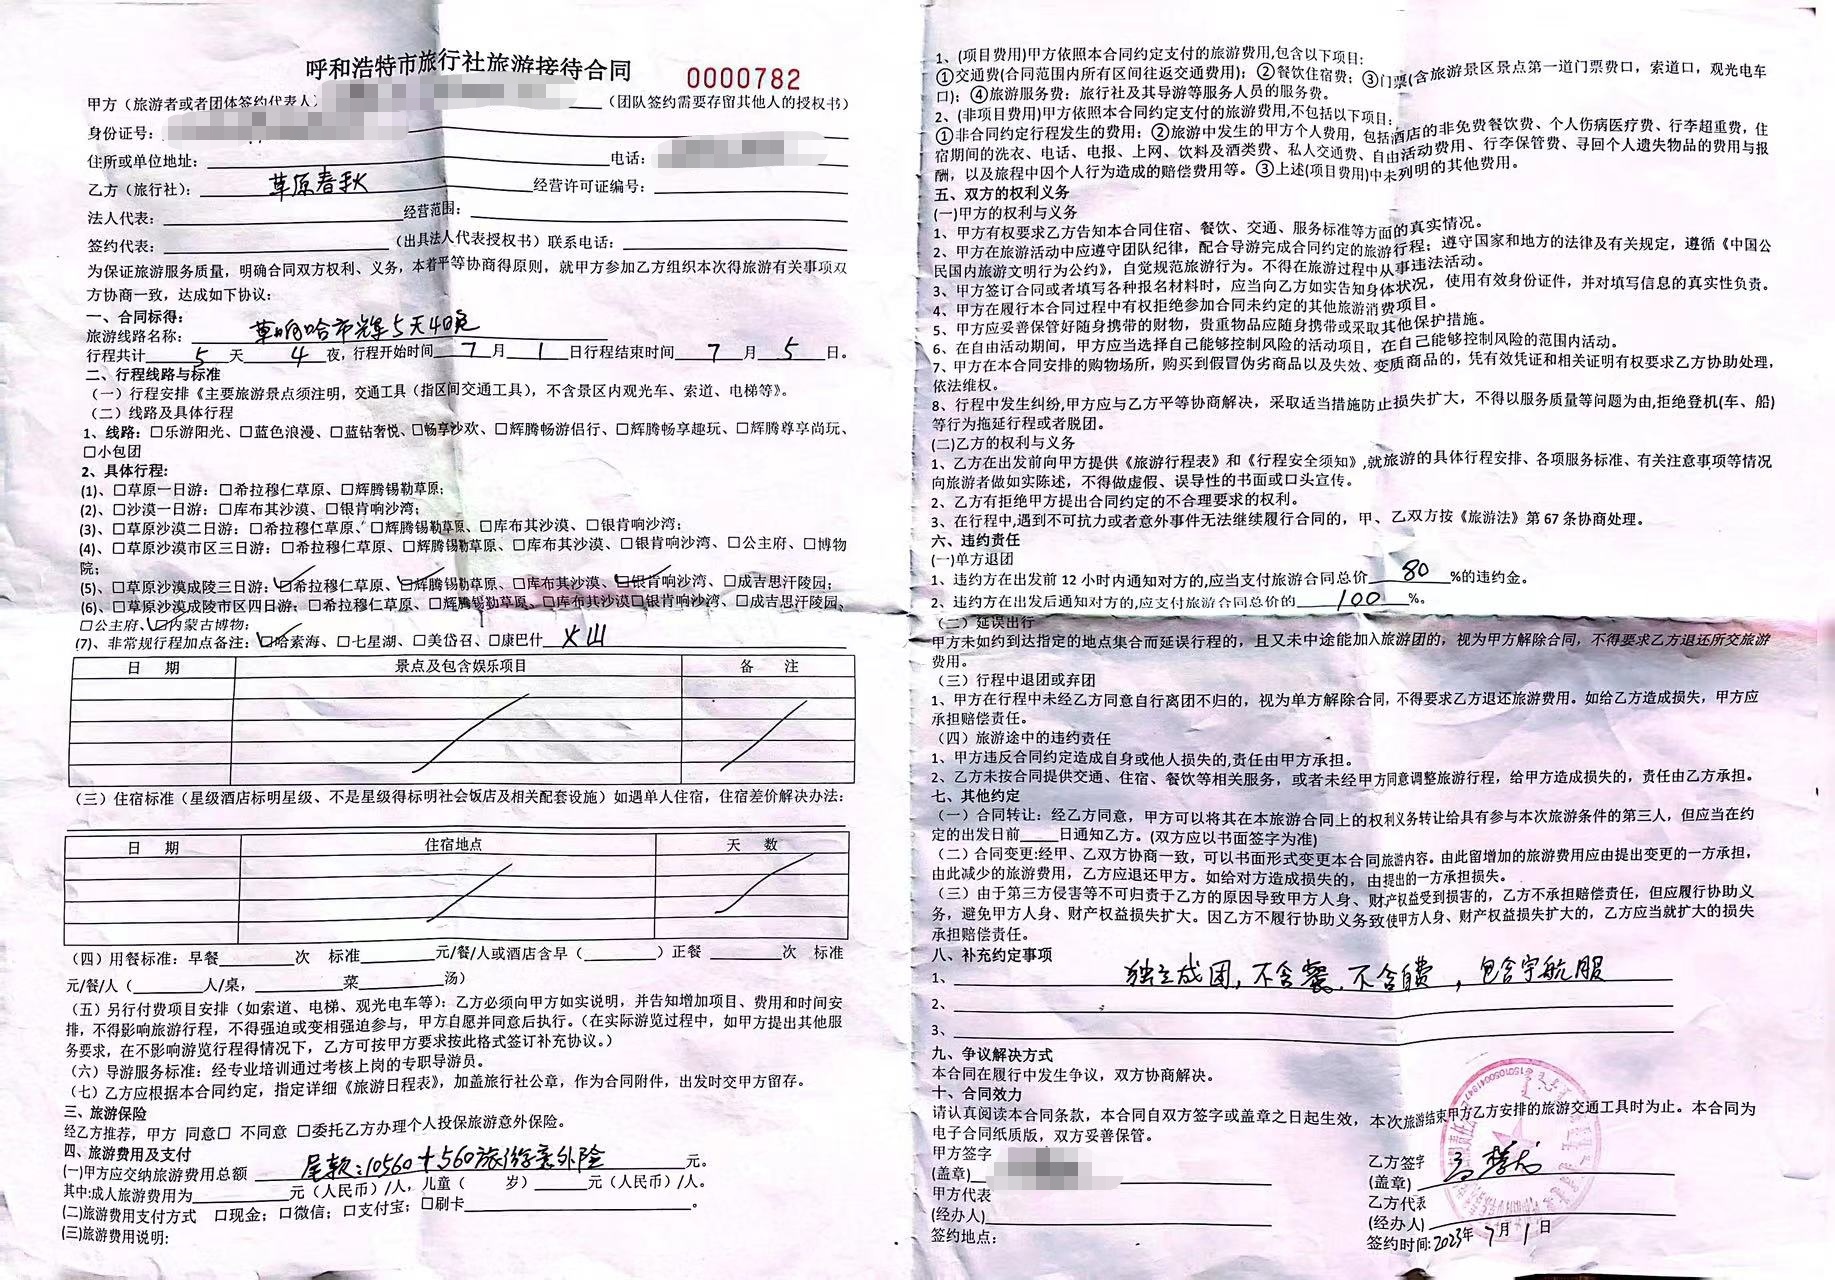 呼和浩特市旅行社旅游接待合同
0000782
甲方（旅游者或者团体签约代表人） （团队签约需要存留其他人的授权书）
身份证号：
住所或单位地址： 电话：
乙方（旅行社）： 草原春秋 经营许可证编号：
法人代表： 经营范围：
签约代表： （出具法人代表授权书）联系电话：
为保证旅游服务质量，明确合同双方权利、义务，本着平等协商得原则，就甲方参加乙方组织本次得旅游有关事项双
方协商一致，达成如下协议：
一、合同标得：
旅游线路名称： 5天4晚
行程共计 5 天 4 夜，行程开始时间 7 月 1 日行程结束时间 7 月 5 日。
二、行程线路与标准
（一）行程安排《主要旅游景点须注明，交通工具（指区间交通工具），不含景区内观光车、索道、电梯等》。
（二）线路及具体行程
1、线路：□乐游阳光、□蓝色浪漫、□蓝钻奢悦、□畅享沙欢、□辉腾畅游侣行、□辉腾畅享趣玩、□辉腾尊享尚玩、
□小包团
2、具体行程：
(1)、□草原一日游：□希拉穆仁草原、□辉腾锡勒草原；
(2)、□沙漠一日游：□库布其沙漠、□银肯响沙湾；
(3)、□草原沙漠二日游：□希拉穆仁草原、□辉腾锡勒草原、□库布其沙漠、□银肯响沙湾；
(4)、□草原沙漠市区三日游：□希拉穆仁草原、□辉腾锡勒草原、□库布其沙漠、□银肯响沙湾、□公主府、□博物
院；
(5)、□草原沙漠成陵三日游：☑希拉穆仁草原、☑辉腾锡勒草原、□库布其沙漠、☑银肯响沙湾、□成吉思汗陵园；
(6)、□草原沙漠成陵市区四日游：□希拉穆仁草原、□辉腾锡勒草原、□库布其沙漠□银肯响沙湾、□成吉思汗陵园、
□公主府、☑内蒙古博物；
(7)、非常规行程加点备注：☑哈素海、□七星湖、□美岱召、□康巴什 火山
日 期 景点及包含娱乐项目 备 注
（三）住宿标准（星级酒店标明星级、不是星级得标明社会饭店及相关配套设施）如遇单人住宿，住宿差价解决办法：
日 期 住宿地点 天 数
（四）用餐标准：早餐 次 标准 元/餐/人或酒店含早（ ）正餐 次 标准
元/餐/人（ 人/桌， 菜 汤）
（五）另行付费项目安排（如索道、电梯、观光电车等）：乙方必须向甲方如实说明，并告知增加项目、费用和时间安
排，不得影响旅游行程，不得强迫或变相强迫参与，甲方自愿并同意后执行。（在实际游览过程中，如甲方提出其他服
务要求，在不影响游览行程得情况下，乙方可按甲方要求按此格式签订补充协议。）
（六）导游服务标准：经专业培训通过考核上岗的专职导游员。
（七）乙方应根据本合同约定，指定详细《旅游日程表》，加盖旅行社公章，作为合同附件，出发时交甲方留存。
三、旅游保险
经乙方推荐，甲方 同意□ 不同意 □委托乙方办理个人投保旅游意外保险。
四、旅游费用及支付
(一)甲方应交纳旅游费用总额 尾款：10560+560旅游意外险 元。
其中:成人旅游费用为 元（人民币）/人，儿童（ 岁） 元（人民币）/人。
(二)旅游费用支付方式 □现金；□微信；□支付宝；□刷卡 。
(三)旅游费用说明:
1、(项目费用)甲方依照本合同约定支付的旅游费用,包含以下项目:
①交通费(合同范围内所有区间往返交通费用)；②餐饮住宿费；③门票(含旅游景区景点第一道门票费口，索道口，观光电车
口)；④旅游服务费：旅行社及其导游等服务人员的服务费。
2、(非项目费用)甲方依照本合同约定支付的旅游费用,不包括以下项目:
①非合同约定行程发生的费用；②旅游中发生的甲方个人费用，包括酒店的非免费餐饮费、个人伤病医疗费、行李超重费，住
宿期间的洗衣、电话、电报、上网、饮料及酒类费、私人交通费、自由活动费用、行李保管费、寻回个人遗失物品的费用与报
酬，以及旅程中因个人行为造成的赔偿费用等。③上述(项目费用)中未列明的其他费用。
五、双方的权利义务
(一)甲方的权利与义务
1、甲方有权要求乙方告知本合同住宿、餐饮、交通、服务标准等方面的真实情况。
2、甲方在旅游活动中应遵守团队纪律，配合导游完成合同约定的旅游行程；遵守国家和地方的法律及有关规定，遵循《中国公
民国内旅游文明行为公约》，自觉规范旅游行为。不得在旅游过程中从事违法活动。
3、甲方签订合同或者填写各种报名材料时，应当向乙方如实告知身体状况，使用有效身份证件，并对填写信息的真实性负责。
4、甲方在履行本合同过程中有权拒绝参加合同未约定的其他旅游消费项目。
5、甲方应妥善保管好随身携带的财物，贵重物品应随身携带或采取其他保护措施。
6、在自由活动期间，甲方应当选择自己能够控制风险的活动项目，在自己能够控制风险的范围内活动。
7、甲方在本合同安排的购物场所，购买到假冒伪劣商品以及失效、变质商品的，凭有效凭证和相关证明有权要求乙方协助处理，
依法维权。
8、行程中发生纠纷,甲方应与乙方平等协商解决，采取适当措施防止损失扩大，不得以服务质量等问题为由,拒绝登机(车、船)
等行为拖延行程或者脱团。
(二)乙方的权利与义务
1、乙方在出发前向甲方提供《旅游行程表》和《行程安全须知》,就旅游的具体行程安排、各项服务标准、有关注意事项等情况
向旅游者做如实陈述，不得做虚假、误导性的书面或口头宣传。
2、乙方有拒绝甲方提出合同约定的不合理要求的权利。
3、在行程中,遇到不可抗力或者意外事件无法继续履行合同的，甲、乙双方按《旅游法》第 67 条协商处理。
六、违约责任
(一)单方退团
1、违约方在出发前 12 小时内通知对方的,应当支付旅游合同总价 80 %的违约金。
2、违约方在出发后通知对方的,应支付旅游合同总价的 100 %。
(二）延误出行
甲方未如约到达指定的地点集合而延误行程的，且又未中途能加入旅游团的，视为甲方解除合同，不得要求乙方退还所交旅游
费用。
（三）行程中退团或弃团
1、甲方在行程中未经乙方同意自行离团不归的，视为单方解除合同，不得要求乙方退还旅游费用。如给乙方造成损失，甲方应
承担赔偿责任。
（四）旅游途中的违约责任
1、甲方违反合同约定造成自身或他人损失的,责任由甲方承担。
2、乙方未按合同提供交通、住宿、餐饮等相关服务，或者未经甲方同意调整旅游行程，给甲方造成损失的，责任由乙方承担。
七、其他约定
（一）合同转让：经乙方同意，甲方可以将其在本旅游合同上的权利义务转让给具有参与本次旅游条件的第三人，但应当在约
定的出发日前 日通知乙方。(双方应以书面签字为准)
（二）合同变更:经甲、乙双方协商一致，可以书面形式变更本合同旅游内容。由此留增加的旅游费用应由提出变更的一方承担，
由此减少的旅游费用，乙方应退还甲方。如给对方造成损失的，由提出的一方承担损失。
（三）由于第三方侵害等不可归责于乙方的原因导致甲方人身、财产权益受到损害的，乙方不承担赔偿责任，但应履行协助义
务，避免甲方人身、财产权益损失扩大。因乙方不履行协助义务致使甲方人身、财产权益损失扩大的，乙方应当就扩大的损失
承担赔偿责任。
八、补充约定事项
1、 独立成团，不含餐，不含自费，包含宇航服
2、
3、
九、争议解决方式
本合同在履行中发生争议，双方协商解决。
十、合同效力
请认真阅读本合同条款，本合同自双方签字或盖章之日起生效，本次旅游结束甲方乙方安排的旅游交通工具时为止。本合同为
电子合同纸质版，双方妥善保管。
甲方签字 乙方签字
(盖章) (盖章)
甲方代表 乙方代表
(经办人) (经办人)
签约地点： 签约时间:2023年 7 月 1 日